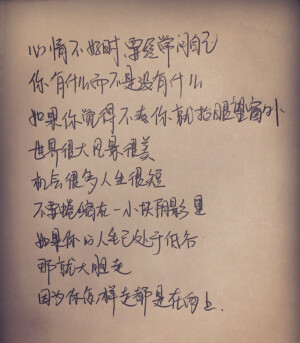 心情不好时,要经常问自己
你有什么而不是没有什么
如果你觉得不爽你就抬眼望窗外
世界很大风景很美
机会很多人生很短
不要蜷缩在一小块阴影里
如果你的人生已处于低谷
那就大胆走
因为你怎样走都是在向上.